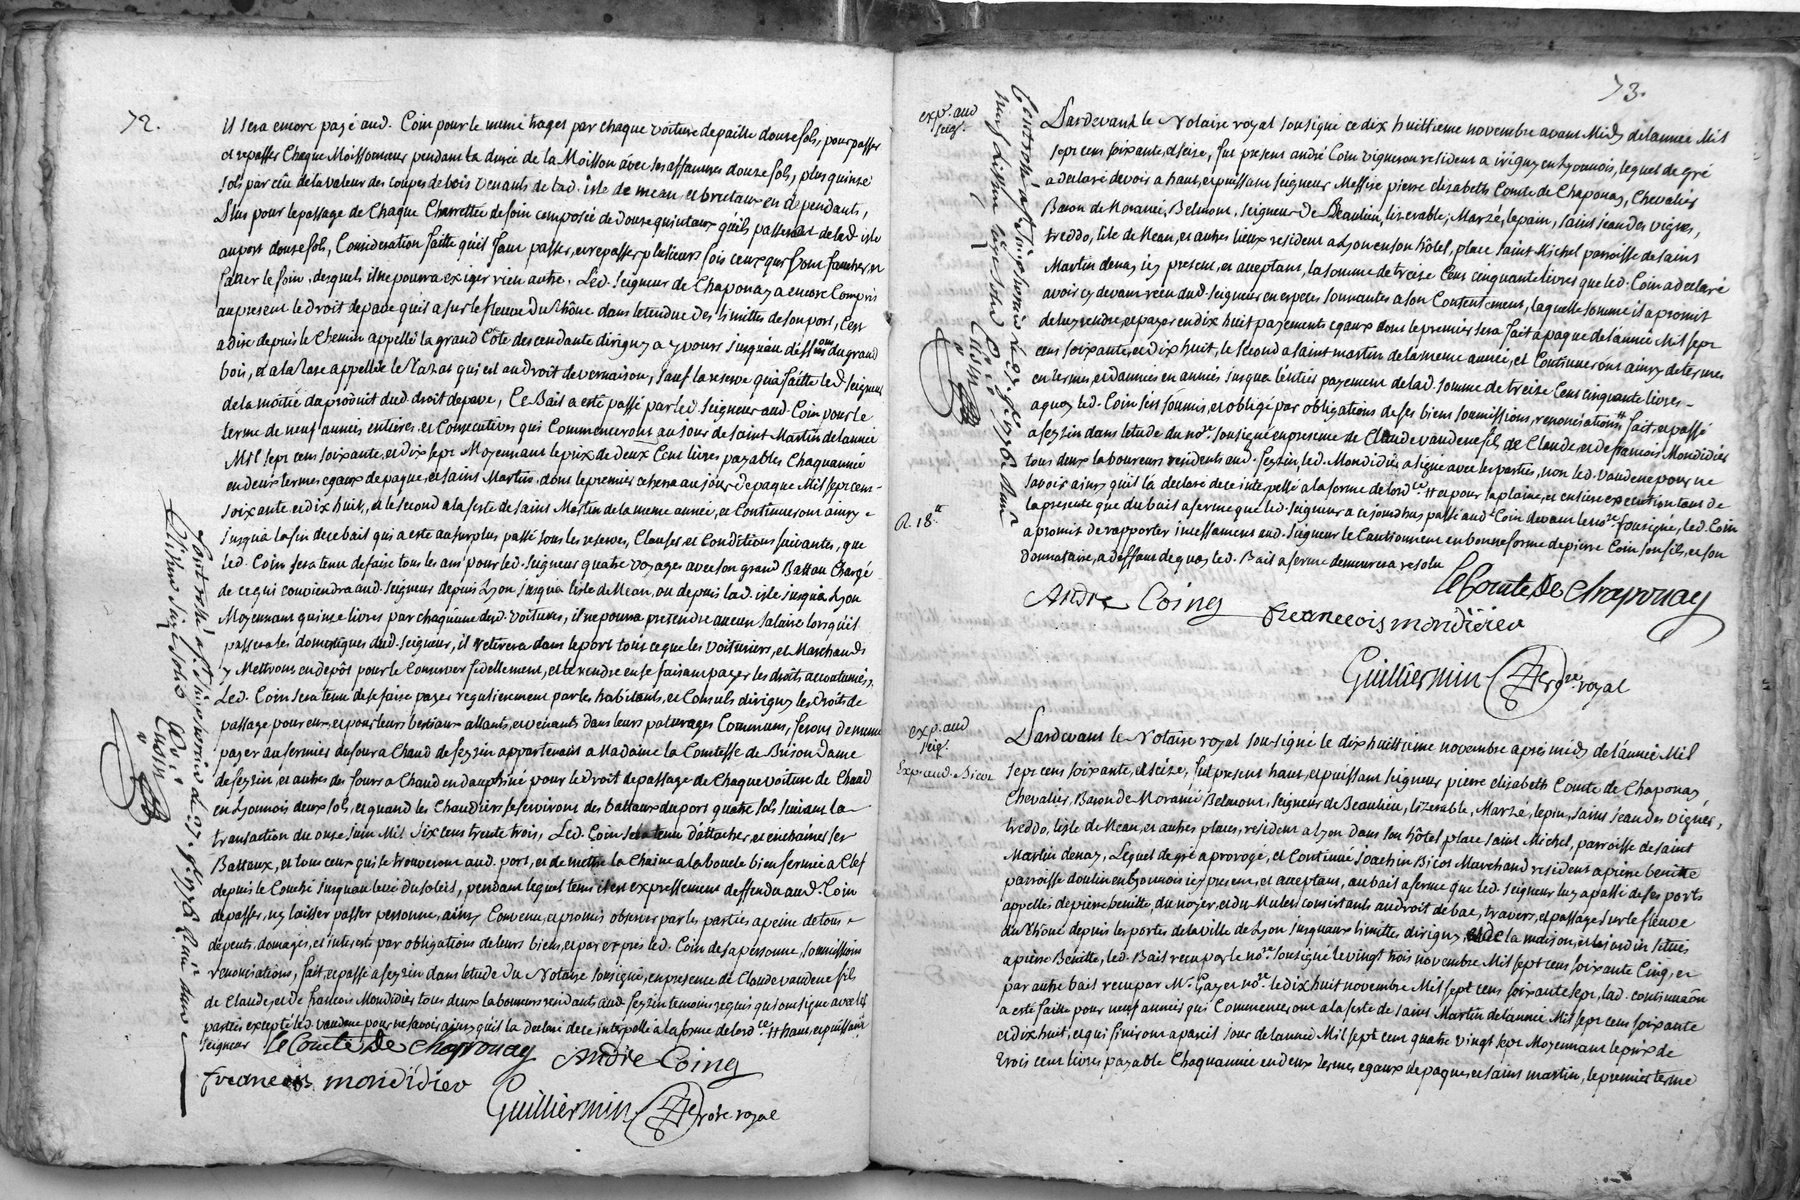 72.
il sera encore payé aud. Coin pour le meme trages par chaque voiture depaille douze sols, pour passer
et repasser Chaque Moissonneur pendant la durée de la Moisson avec ses affanures douze sols, plus quinze
sols par ecu de la valeur des coupes de bois venants de lad. isle de mean et brotaux en dependants,
Plus pour le passage de Chaque Charrettée de foin composée de douze quintaux qu'il passera de lad. isle
au port douze sols, Consideration faitte qu'il faut passer, et repasser plusieurs fois ceux qui font faucher, et
faner le foin, desquels il ne pourra exiger rien autre. Led. Seigneur de Chaponay a encore Compris
au present le droit de pave qu'il a sur le fleuve du Rhône dans letendue des limittes de son port, C'est
a dire depuis le Chemin appellé la grand Côte descendante dirigny a yvours jusqu'au dessous du grand
bois, et a la Raze appellée le Nazat qui est au droit de vernaison, Sauf la reserve qu'a faitte led. Seigneur
de la moitié du produit dud. droit de pave, Ce Bail a esté passé par led. Seigneur aud. Coin pour le
terme de neuf années entieres, et Consecutives qui Commenceront au jour de saint Martin de l'année
Mil sept cens soixante, et dix sept Moyennant le prix de deux Cens livres payables Chaqu'année
en deux termes egaux de paque, et saint Martin, dont le premier echerra au jour de paque Mil sept cens -
soixante et dix huit, et le second a la feste de saint Martin de la meme année, et Continueront ainsy -
jusqu'a la fin de ce bail qui a esté au surplus passé sous les reserves, Clauses et Conditions suivantes, que
Led. Coin sera tenu de faire tous les ans pour led. Seigneur quatre voyages avec son grand Battau Chargé
de ce qui conviendra aud. Seigneur depuis Lyon, jusqu'a l'isle de Mean, ou depuis lad. isle jusqu'a Lyon
Moyennant quinze livres par chaqu'une dud. voitures, il ne pourra pretendre aucun salaire lorsqu'il
passera les domestiques dud. Seigneur, il retirera dans le port tout ce que les voituriers, et Marchands
y Mettront en depôt pour le Conserver fidellement, et le rendre en se faisant payer les droits accoutumés,
Led. Coin sera tenu de se faire payer regulierement par les habitants, et Consuls dirigny les droits de
passage pour eux, et pour leurs bestiaux allants, et venants dans leurs paturages Communs, ferons de meme
payer au fermier du four a Chaud de feyzin appartenant a Madame la Comtesse de Brison Dame
de feyzin, et autres des fours a Chaud en dauphiné pour le droit de passage de Chaque voiture de Chaud
en Lyonnois deux sols, et quand les Chaudiers se serviront des battaux du port quatre sols suivant la -
transaction du onze juin Mil six cens trente trois, Led. Coin sera tenu d'attacher et enchainer ses
Battaux, et tous ceux qui se trouveront aud. port, et de mettre la Chaine a la boucle bien fermée a Clef
depuis le Couché jusqu'au levé du soleil, pendant lequel tems il est expressement deffendu aud. Coin
de passer, ny laisser passer personne, ainsy Convenu, et promis observer par les parties a peine de tous -
depents, domages, et interets par obligations de leurs biens, et par exprés led. Coin de sa personne, soumissions
renonciations, fait, et passé a feyzin dans letude du Notaire soussigné, en presence de Claude vaudene fils
de Claude, et de francois Mondidier tous deux laboureurs residants aud. feyzin temoins requis qui ont signé avec les
parties excepté led. vaudene pour ne savoir ainsy qu'il la declaré de ce interpellé a la forme de lord.ce # haut, et puissant
seigneur
Le Comte De Chaponay
André Coing
francois mondidier
Guilliermin no.re royal
73.
exp. aud
seig.
Pardevant le Notaire royal soussigné ce dix huittieme novembre avant Midy de l'année Mil
sept cens soixante, et seize, fut present andré Coin vigneron resident a irigny en Lyonnois, lequel de gré
a declaré devoir a haut, et puissant seigneur Messire pierre elizabeth Comte de Chaponay, Chevalier
Baron de Morancé, Belmont, seigneur de Beaulieu, lizerable, Marzé, lepain, saint jean des vignes,
treddo, l'ile de Mean, et autres lieux resident a Lyon en son hôtel, place saint Michel parroisse de saint
Martin denay icy present, et acceptant, la somme de treize Cens cinquante livres que led. Coin a declaré
avoir cy devant reçu dud. seigneur en especes sonnantes a son Contentement, laquelle somme il a promit
de luy rendre, et payer en dix huit payements egaux dont le premier sera fait a paque de l'année Mil sept
cens soixante, et dix huit, le second a saint martin de la meme année, et Continueront ainsy de termes
en termes, et d'années en années jusqu'a l'entier payement de lad. somme de treize Cens cinquante livres -
a quoy led. Coin s'est soumis, et obligé par obligations de ses biens soumissions, renonciations # fait, et passé
a feyzin dans letude du no.re soussigné en presence de Claude vaudene fils de Claude, et de francois Mondidier
tous deux laboureurs residents aud. feyzin, led. Mondidier a signé avec les parties, non led. vaudene pour ne
savoir ainsy qu'il la declaré de ce interpellé a la forme de lord.ce # et pour la plaine, et entiere execution tant de
la presente que du bail a ferme que led. seigneur a ce jourdhuy passé aud. Coin devant le no.re soussigné, led. Coin
a promit de rapporter incessament aud. seigneur le Cautionnement en bonne forme de pierre Coin son fils, et son
donnataire, a deffaut de quoy led. Bail a ferme demeurera resolu
R. 18 s
Le Comte De Chaponay
André Coing
francois mondidier
Guilliermin no.re royal
exp. aud
seig.
Exp. aud. Bicot
Pardevant le Notaire royal soussigné le dix huittieme novembre aprés midy de l'année Mil
sept cens soixante, et seize, fut present haut, et puissant seigneur pierre elizabeth Comte de Chaponay
Chevalier, Baron de Morancé Belmont, seigneur de Beaulieu, lizerable, Marzé, lepin, saint jean des vignes,
treddo, l'isle de Mean, et autres places, resident a Lyon dans son hôtel place saint Michel, parroisse de saint
Martin denay, Lequel de gré a prorogé, et Continué a joachin Bicot Marchand resident a pierre benitte
parroisse doulin en Lyonnois icy present, et acceptant, au bail a ferme que led. seigneur luy a passé de ses ports
appellés de pierre benitte, du noyer, et du Mulet consistants au droit de bac, travers, et passage sur le fleuve
du Rhône depuis les portes de la ville de Lyon jusqu'aux limittes dirigny, et de la maison, et les jardin situés
a pierre Benitte, led. Bail reçu par le no.re soussigné le vingt trois novembre Mil sept cens soixante Cinq, et
par autre bail reçu par M.e Gayet no.re le dix huit novembre Mil sept cens soixante sept, lad. continuaon
a esté faitte pour neuf années qui Commenceront a la feste de saint Martin de l'année Mil sept cens soixante
et dix huit, et qui finiront a pareil jour de l'année Mil sept cens quatre vingt sept Moyennant le prix de
trois cens livres payable Chaqu'année en deux termes egaux de paque, et saint martin, le premier terme